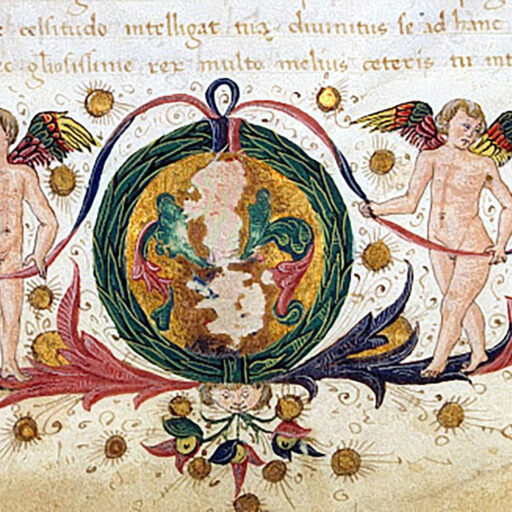 celsitudo intelligat tuą diuinitus se ad hanc
gliosissime rex multo melius ceteris tu